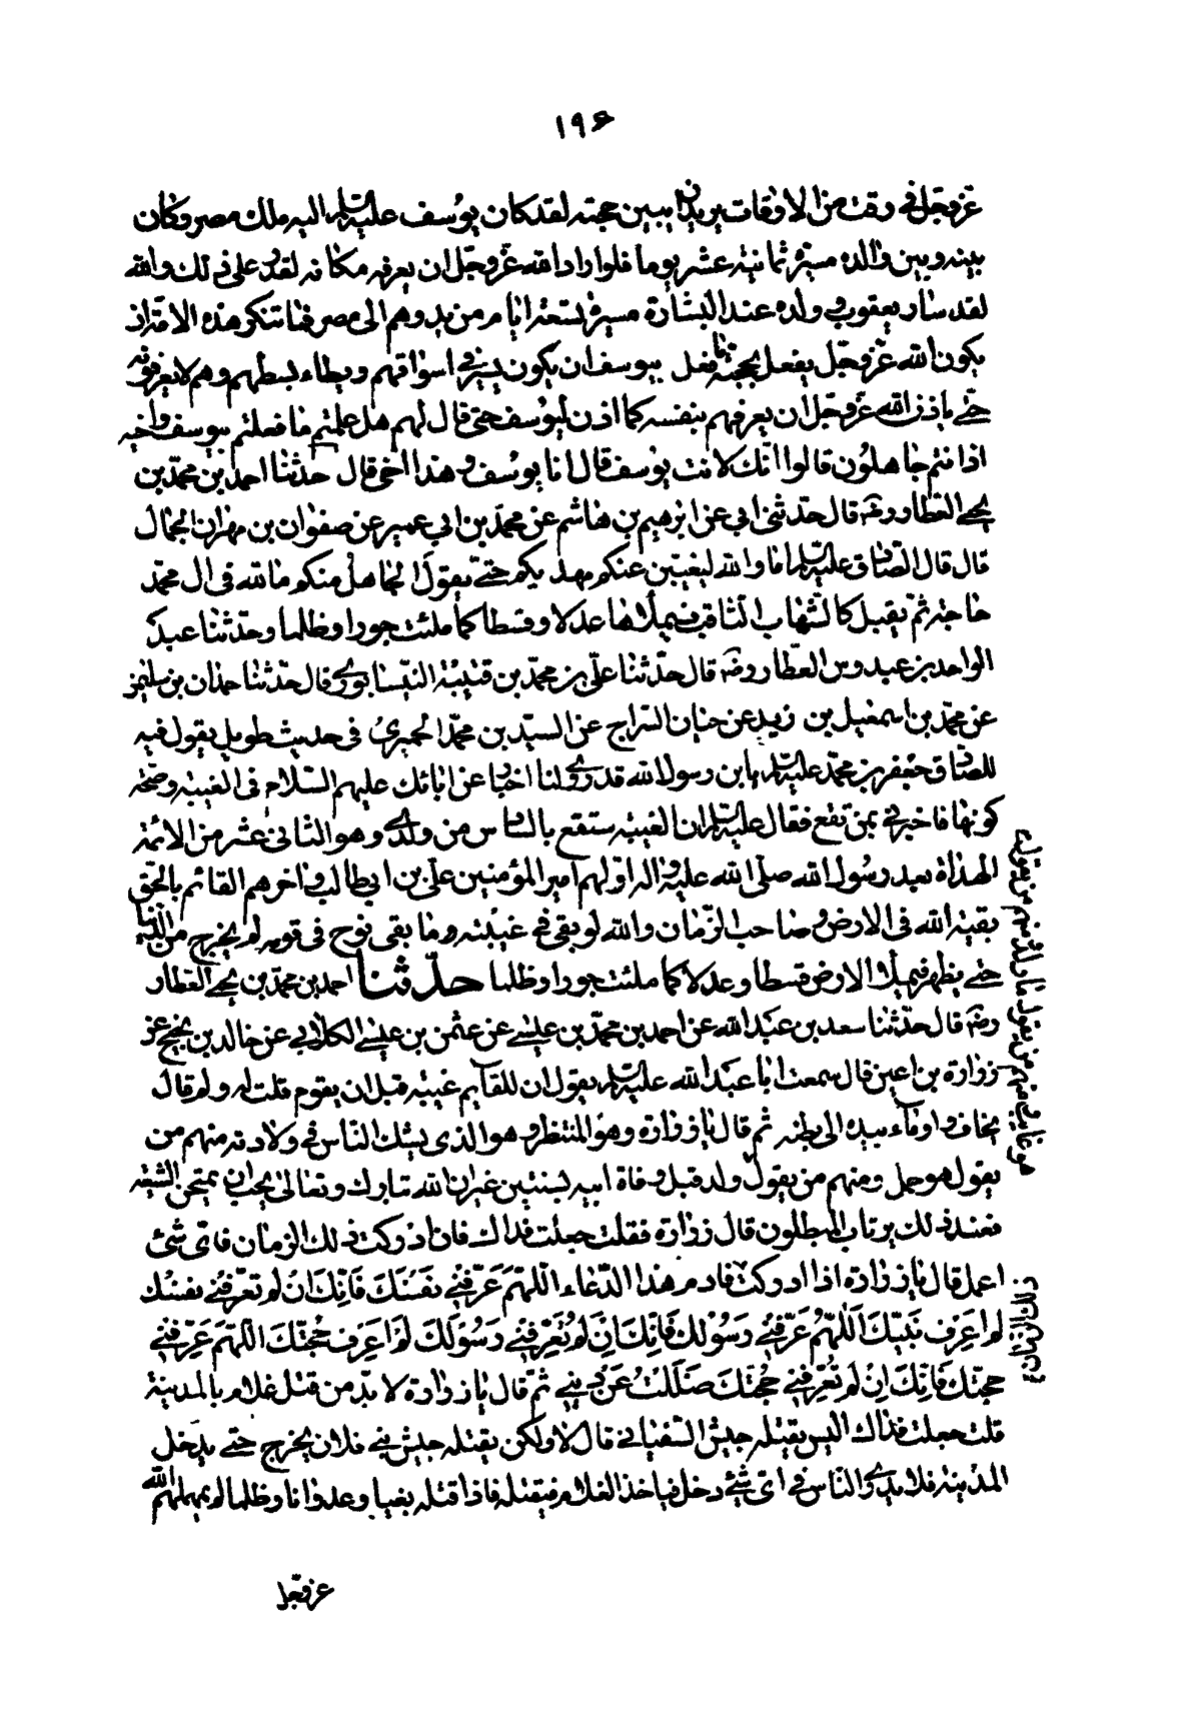 ١٩۶
عزوجل في وقت من الاوقات يريد ان يبين حجته لقد كان يوسف عليه السلم اليه ملك مصر وكان
بينه وبين والده مسيرة ثمانية عشر يوما فلو اراد الله عزوجل ان يعرفه مكانه لقدر على ذلك والله
لقد سار يعقوب وولده عند البشارة مسيرة تسعة ايام من بدوهم الى مصر فما تنكر هذه الامة ان
يكون الله عزوجل يفعل بحجته ما فعل بيوسف ان يكون يسير في اسواقهم ويطاء بسطهم وهم لا يعرفونه
حتى ياذن الله عزوجل ان يعرفهم بنفسه كما اذن ليوسف حتى قال لهم هل علمتم ما فعلتم بيوسف واخيه
اذ انتم جاهلون قالوا انك لانت يوسف قال انا يوسف وهذا اخى قال حدثنا احمد بن محمد بن
يحيى العطار رضه قال حدثنى ابى عن ابرهيم بن هاشم عن محمد بن ابى عمير عن صفوان بن مهران الجمال
قال قال الصادق عليه السلم اما والله ليغيبن عنكم مهديكم حتى يقول الجاهل منكم ما لله فى ال محمد
حاجة ثم يقبل كالشهاب الثاقب فيملاءها عدلا وقسطا كما ملئت جورا وظلما وحدثنا عبد
الواحد بن عبدوس العطار رضه قال حدثنا على بن محمد بن قتيبة النيسابورى قال حدثنا حمدان بن سليمن
عن محمد بن اسمعيل بن زيد عن حيان السراج عن السيد بن محمد الحميرى فى حديث طويل يقول فيه
للصادق جعفر بن محمد عليه السلم يا بن رسول الله قد روى لنا اخبار عن ابائك عليهم السلام فى الغيبة وصحة
كونها فاخبرنى بمن تقع فقال عليه السلم ان الغيبة ستقع بالسادس من ولدى وهو الثانى عشر من الائمة
الهداة بعد رسول الله صلى الله عليه واله اولهم امير المؤمنين على بن ابيطالب واخرهم القائم بالحق
بقية الله فى الارض وصاحب الزمان والله لو بقى فى غيبته وما بقى نوح فى قومه لم يخرج من الدنيا
حتى يظهر فيملاء الارض قسطا وعدلا كما ملئت جورا وظلما حدثنا احمد بن محمد بن يحيى العطار
رضه قال حدثنا سعد بن عبد الله عن احمد بن محمد بن عيسى عن عثمن بن عيسى الكلابى عن خالد بن نجيح عن
زرارة بن اعين قال سمعت ابا عبد الله عليه السلم يقول ان للقايم غيبة قبل ان يقوم قلت له ولم قال
يخاف واوماء بيده الى بطنه ثم قال يا زرارة وهو المنتظر وهو الذى يشك الناس فى ولادته منهم من
يقول هو حمل ومنهم من يقول ولد قبل وفاة ابيه بسنتين غير ان الله تبارك وتعالى يحب ان يمتحن الشيعة
فعند ذلك يرتاب المبطلون قال زرارة فقلت جعلت فداك فان ادركت ذلك الزمان فاى شئ
اعمل قال يا زرارة اذا ادركت فادم هذا الدعاء اللهم عرفنى نفسك فانك ان لم تعرفنى نفسك
لم اعرف نبيك اللهم عرفنى رسولك فانك ان لم تعرفنى رسولك لم اعرف حجتك اللهم عرفنى
حجتك فانك ان لم تعرفنى حجتك ضللت عن دينى ثم قال يا زرارة لا بد من قتل غلام بالمدينة
قلت جعلت فداك اليس يقتله جيش السفيانى قال لا ولكن يقتله جيش بنى فلان يخرج حتى يدخل
المدينة فلا يدرى الناس فى اى شئ دخل فياخذ الغلام فيقتله فاذا قتله بغيا وعدوانا وظلما لم يمهلهم الله
هو غايب ومنهم من يقول ما ولد ومنهم من يقول
عزوجل